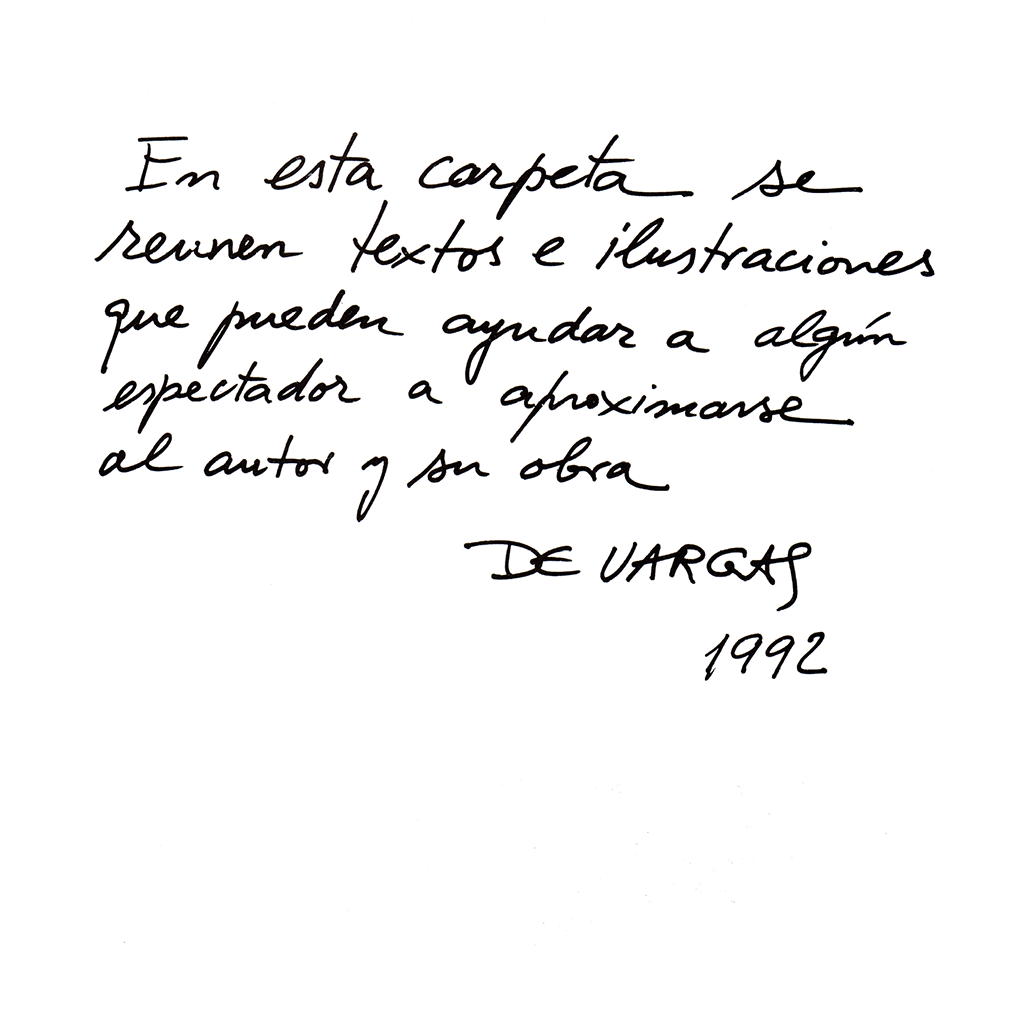 En esta carpeta se
reunen textos e ilustraciones
que pueden ayudar a algún
espectador a aproximarse
al autor y su obra
DE VARGAS
1992